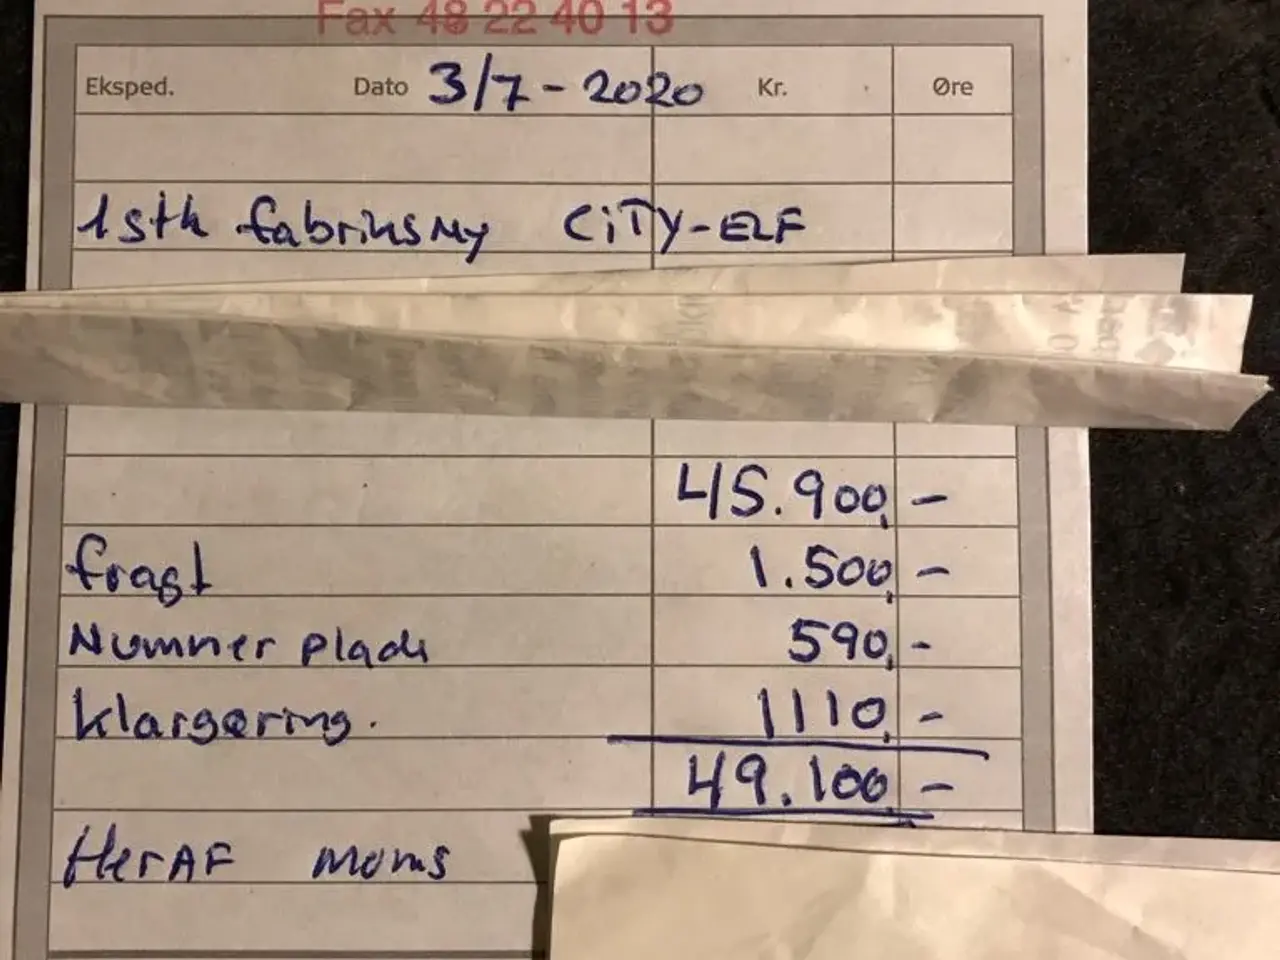 Fax 48 22 40 13
Eksped. Dato 3/7-2020 Kr. Øre
1stk fabriksny CiTY-ELF
45.900,-
fragt 1.500,-
Nummerplade 590,-
klargøring. 1110,-
49.100,-
HerAF moms